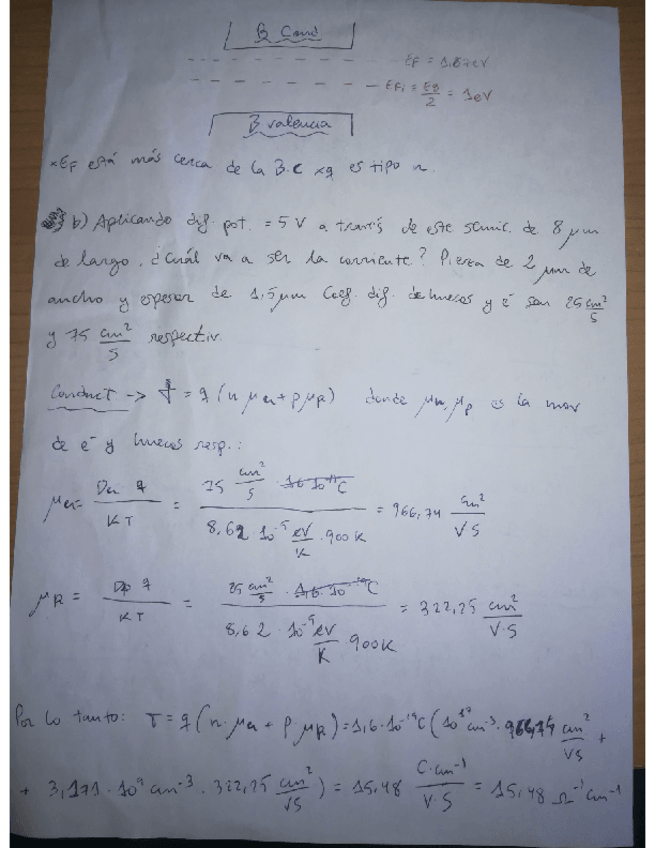 B Cond
EF = 1,87eV
EFi = Eg/2 = 1eV
B valencia
*EF está más cerca de la B.C xq es tipo n.
b) Aplicando dif. pot. = 5 V a través de este semic. de 8 μm
de largo, ¿cuál va a ser la corriente? Pieza de 2 μm de
ancho y espesor de 1,5μm Coef. dif. de huecos y e⁻ son 25 cm²/S
y 75 cm²/S respectiv.
Conduct → σ = q (n μn + p μp) donde μn, μp es la mov
de e⁻ y huecos resp.:
μn = Dn q / KT = 75 cm²/S · 1,6 10⁻¹⁹C / 8,62 10⁻⁵ eV/K · 900K = 966,74 cm²/VS
μp = Dp q / KT = 25 cm²/S · 1,6 · 10⁻¹⁹C / 8,62 · 10⁻⁵ eV/K · 900K = 322,25 cm²/V·S
Por lo tanto: σ = q (n · μn + p · μp) = 1,6 · 10⁻¹⁹C (10¹⁷ cm⁻³ · 966,74 cm²/VS +
+ 3,171 · 10⁹ cm⁻³ · 322,25 cm²/VS) = 15,48 C·cm⁻¹/V·S = 15,48 Ω⁻¹cm⁻¹